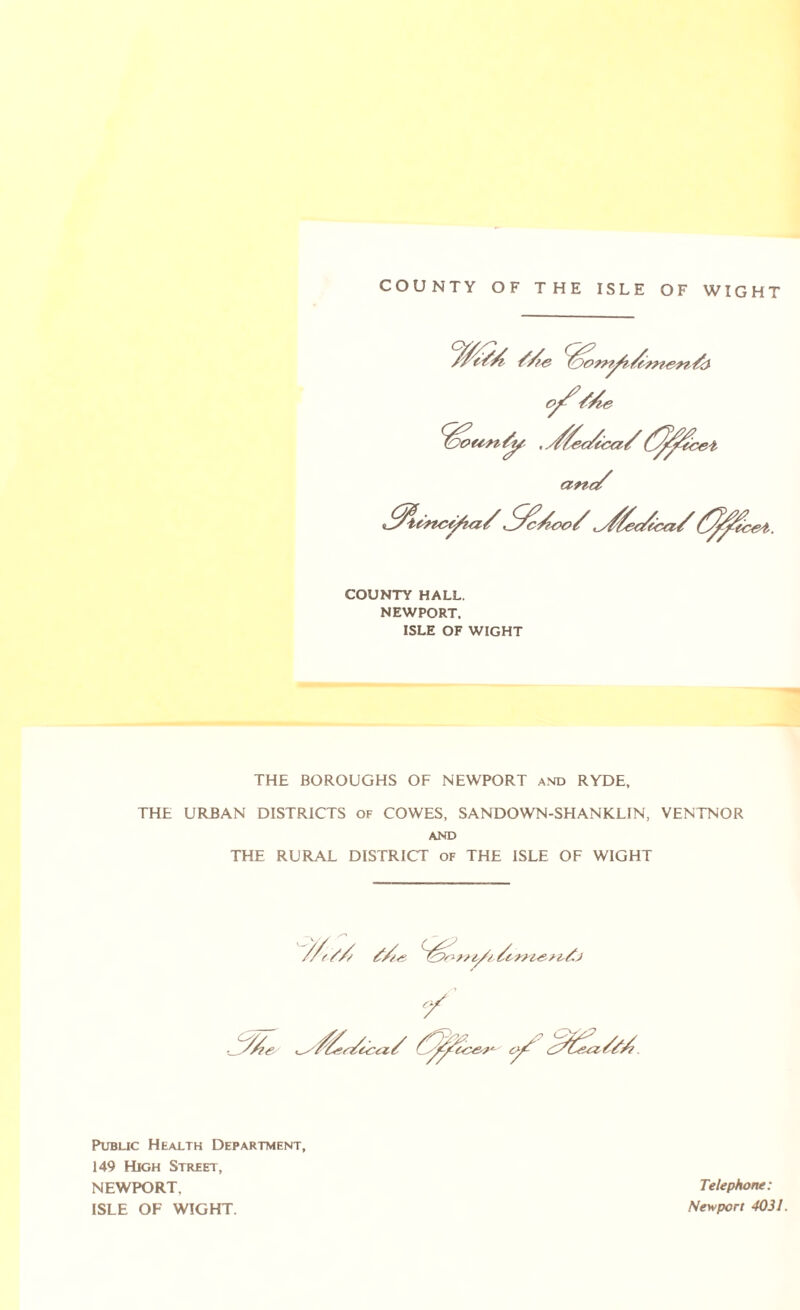 COUNTY OF THE ISLE OF WIGHT
With the Compliments
of the
County Medical Officer
and
Principal School Medical Officer.
COUNTY HALL.
NEWPORT.
ISLE OF WIGHT
THE BOROUGHS OF NEWPORT AND RYDE,
THE URBAN DISTRICTS OF COWES, SANDOWN-SHANKLIN, VENTNOR
AND
THE RURAL DISTRICT OF THE ISLE OF WIGHT
With the Compliments
of
The Medical Officer of Health.
PUBLIC HEALTH DEPARTMENT,
149 HIGH STREET,
NEWPORT,
ISLE OF WIGHT.
Telephone:
Newport 4031.